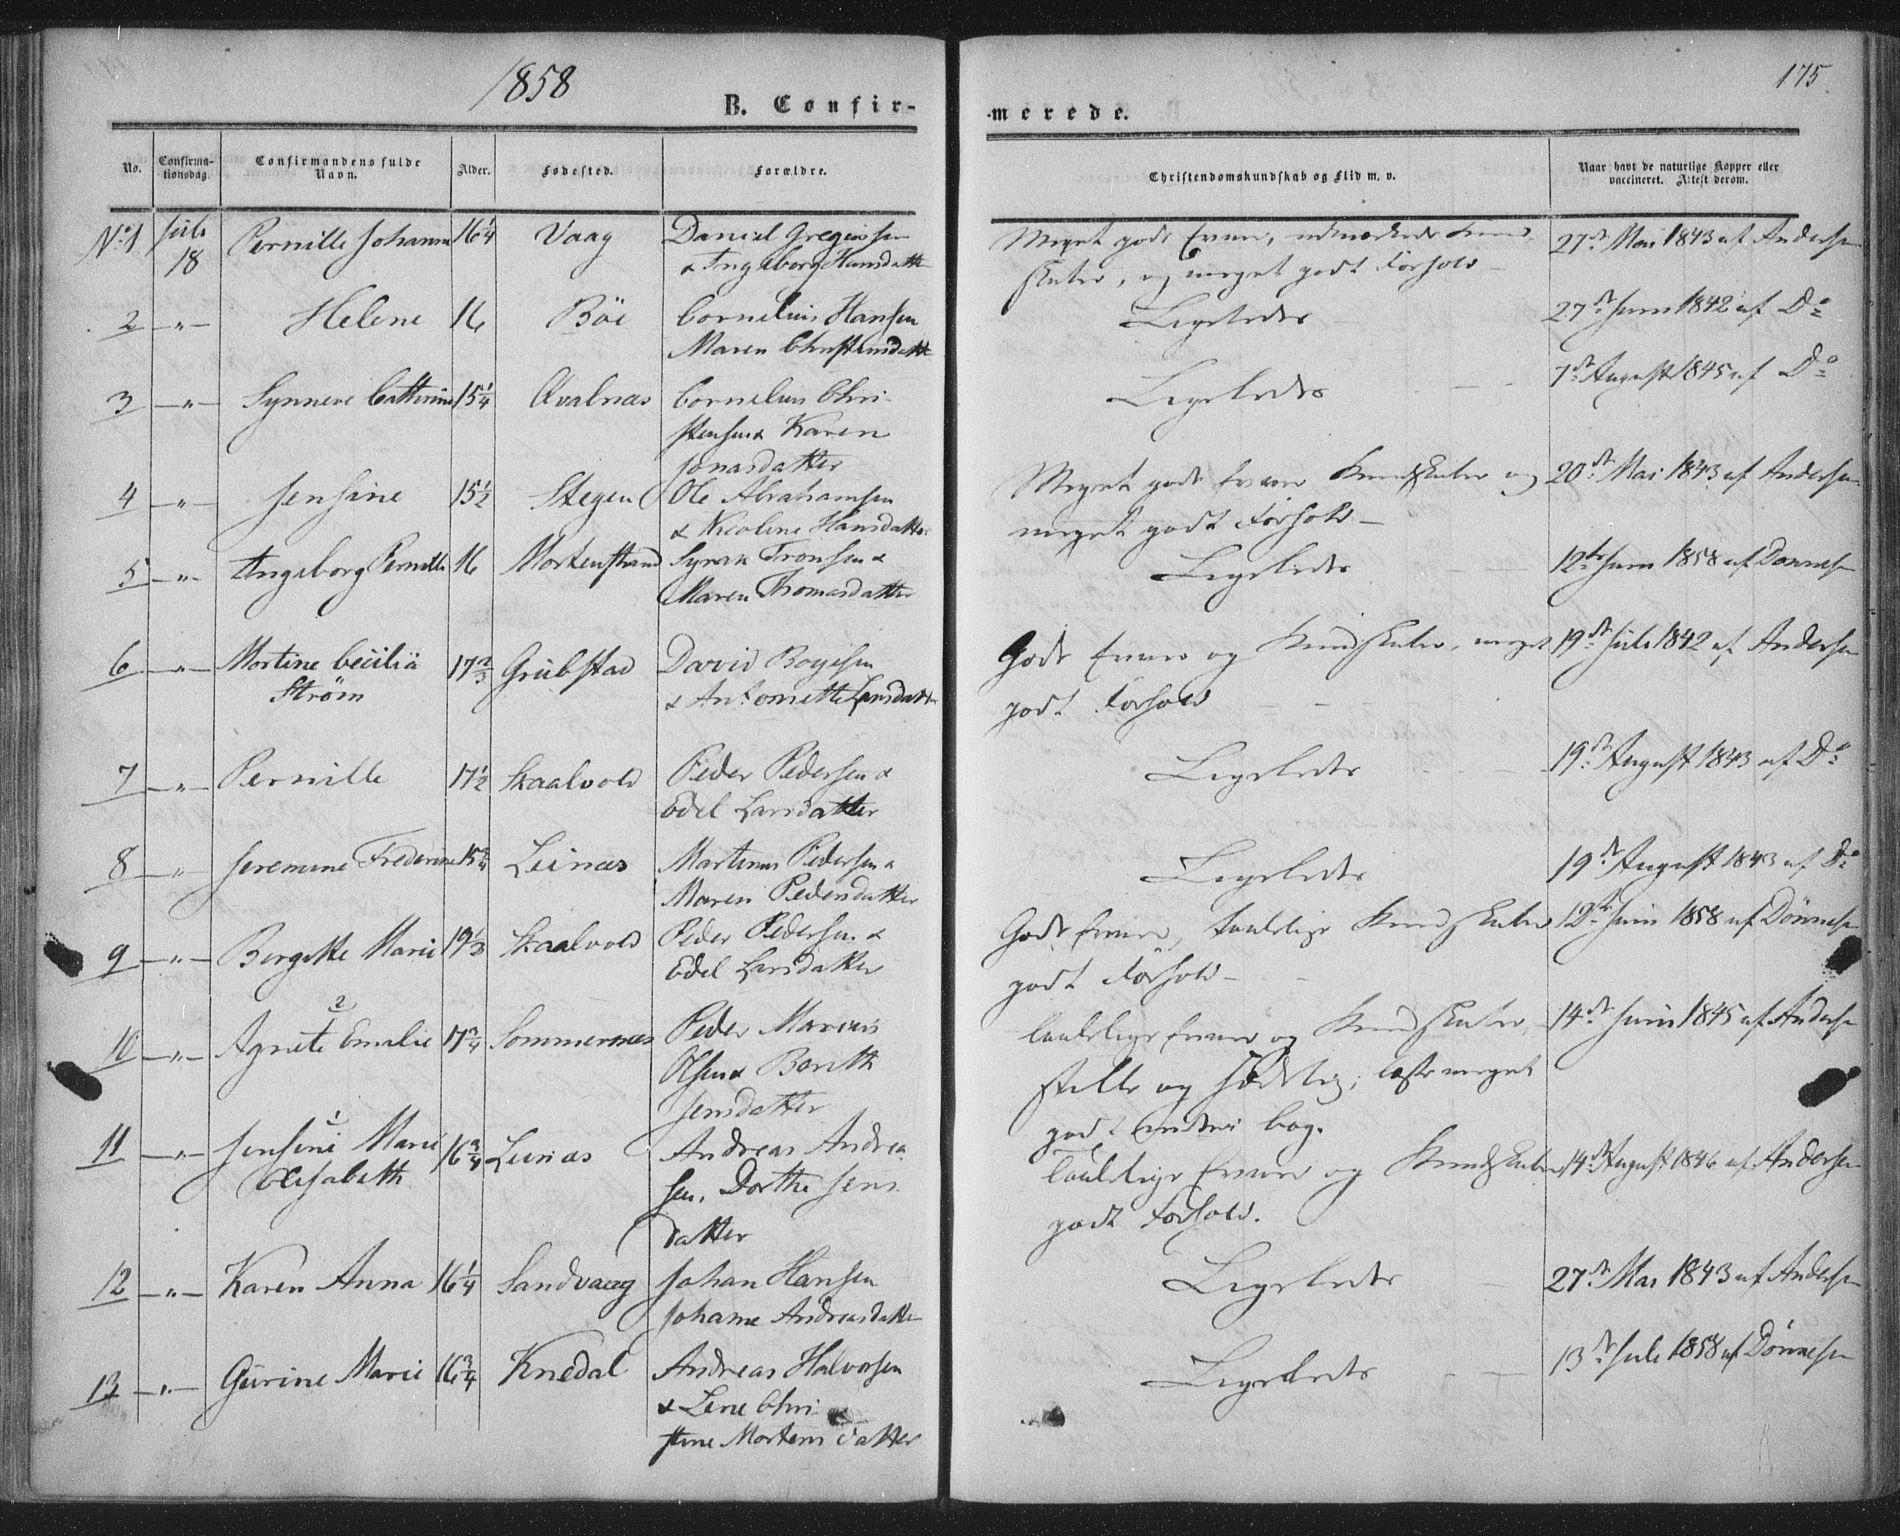 1858
175.
B. Confir-
-merede.
No.
Confirma-
tionsdag.
Confirmandens fulde
Navn.
Alder.
Fødested.
Forældre.
Christendomskundskab og Flid m. v.
Naar havt de naturlige Kopper eller
vaccineret. Attest derom.
No 1 Juli Pernille Johanna 16 1/4 Vaag Daniel Gregersen Meget gode Evner, udmærkede Kund- 27de Mai 1843 af Andersen
18 & Ingeborg Hansdatter skaber, og meget godt Forhold
2 -"- Helene 16 Böe Cornelius Hansen Ligeledes 27de Juni 1842 af Do
Maren Christensdatter
3 -"- Synneve Cathrine 15 1/4 Qvalnæs Cornelius Chri- Ligeledes 7de August 1845 af Do
stensen & Karen
Jonasdatter
4 -"- Jensine 15 1/2 Stegen Ole Abrahamsen Meget gode Evner Kundskaber og 20de Mai 1843 af Andersen
& Nicoline Hansdatter meget godt Forhold
5 -"- Ingeborg Pernille 16 Mortenstrand Syrak Tronsen & Ligeledes 12te Juni 1858 af Dønnesen
Maren Thomasdatter
6 -"- Martine Cecilia 17 2/3 Grübstad David Boyesen Gode Evner og Kundskaber, meget 19de Juli 1842 af Andersen
Strøm & Antonette Larsdatter godt Forhold
7 -"- Pernille 17 1/2 Skaalvold Peder Pedersen & Ligeledes 19de August 1843 af Do
Edel Larsdatter
8 -"- Jeremine Frederine 15 3/4 Leinæs Martinus Pedersen & Ligeledes 19de August 1843 af Do
Maren Pedersdatter
9 -"- Bergitte Marie 19 1/3 Skaalvold Peder Pedersen & Gode Evner, taalelige Kundskaber 12te Juni 1858 af Dönnesen
Edel Larsdatter godt Forhold
2
10 -"- Agnete Emilie 17 3/4 Sommernæs Peder Marcus Taalelige Evner og Kundskaber 14de Juni 1845 af Andersen
Olsen & Berith stille og sædelig; læste meget
Jensdatter godt inden bog.
1
11 -"- Jensine Marie 16 3/4 Leinæs Andreas Andrea- Taalelige Evner og Kundskaber 14de August 1846 af Andersen
Elisabeth sen, Dorthe Jens- godt Forhold.
datter
12 -"- Karen Anna 16 1/4 Sandvaag Johan Hansen Ligeledes 27de Mai 1843 af Andersen
Johanne Andreasdatter
13 -"- Gurine Marie 16 3/4 Knedal Andreas Halvorsen Ligeledes 13de Juli 1858 af Dönnesen
& Lene Chri-
stine Mortensdatter